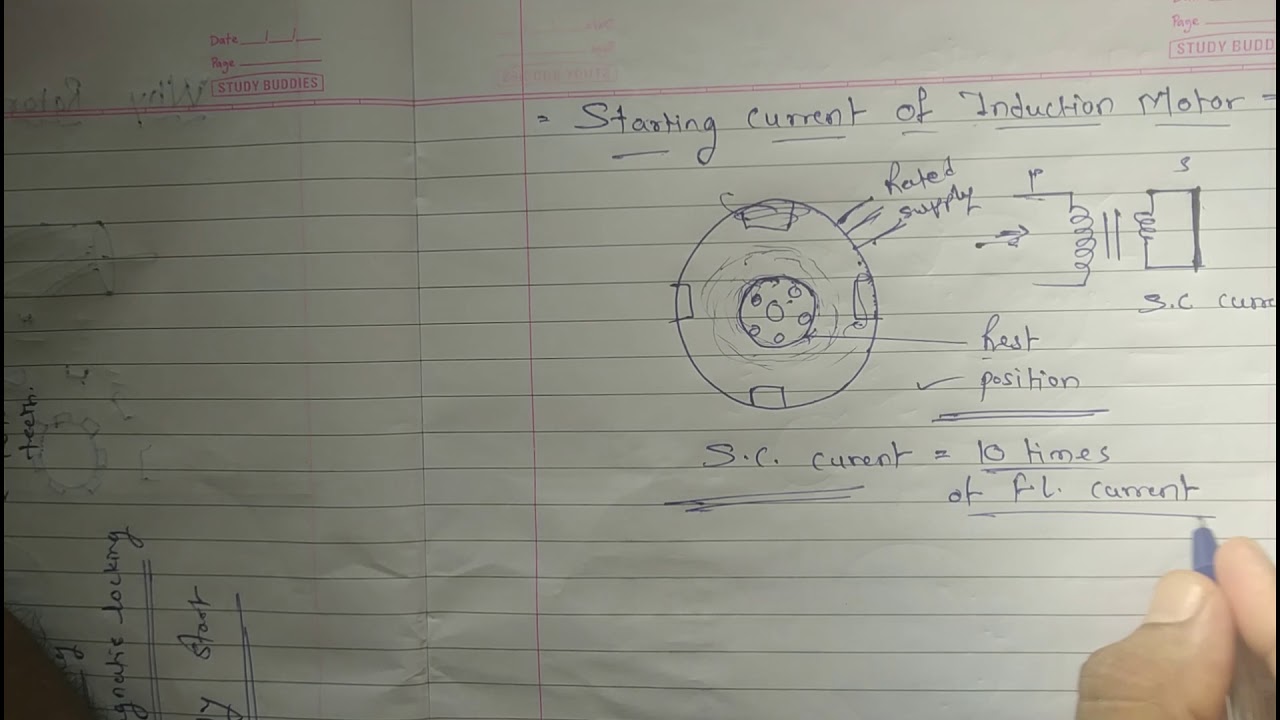 Date
Page
STUDY BUDDIES
Page
STUDY BUDD
= Starting current of Induction Motor =
Rated
supply
P
S
S.C curr
Rest
position
S.C. curent = 10 times
of F.L. current
teeth.
gnatic locking
start